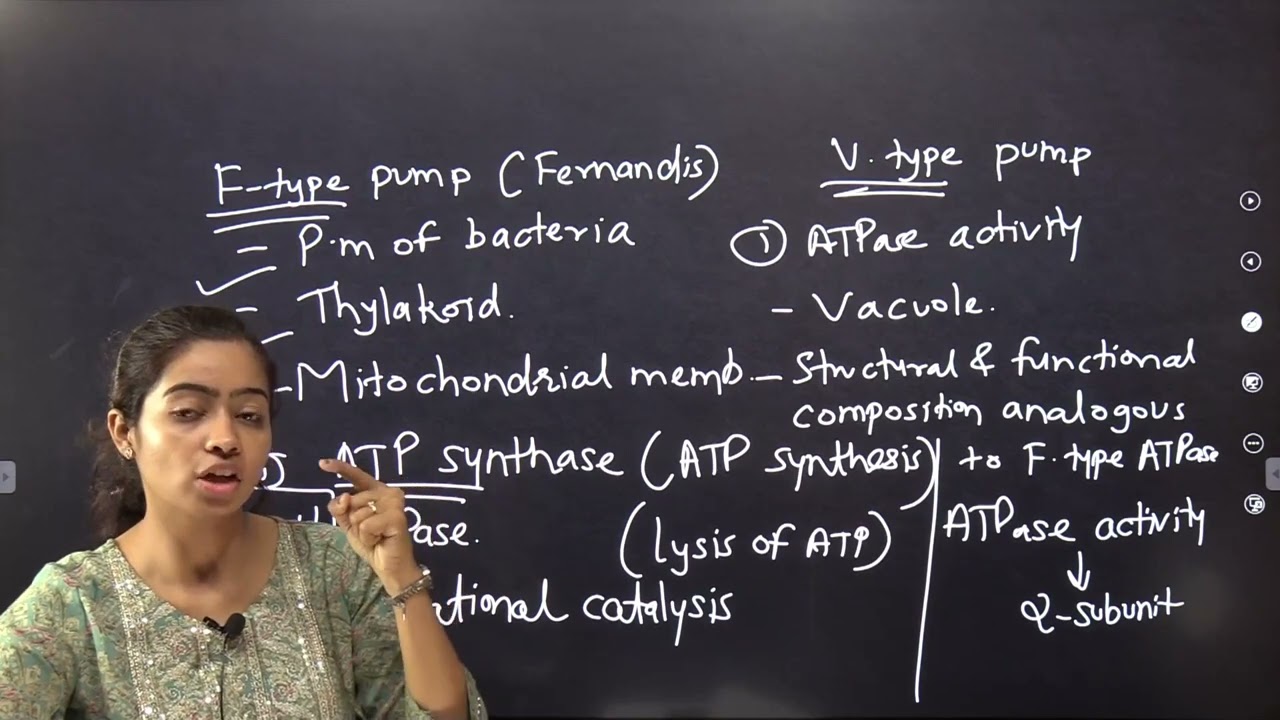 F-type pump (Fernandis)
- P.m of bacteria
- Thylakoid.
- Mitochondrial memb.
ATP synthase (ATP synthesis)
(lysis of ATP)
catalysis
V.type pump
① ATPase activity
- Vacuole.
- Structural & functional
composition analogous
to F.type ATPase
ATPase activity
↓
α-subunit